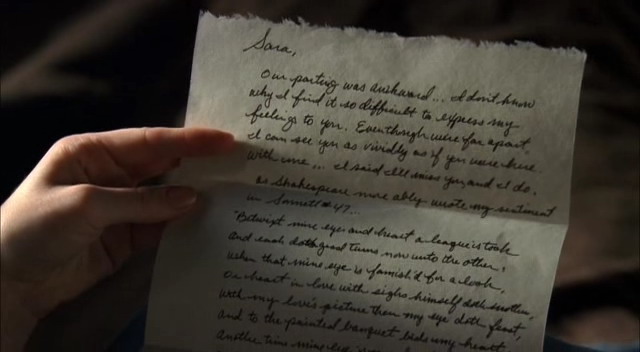 Sara,
Our parting was awkward... I don't know
why I find it so difficult to express my
feelings to you. Eventhough were far apart
I can see you as vividly as if you were here
with me... I said I'll miss you and I do.
as Shakespeare more ably wrote my sentiment
in Sonnet # 47...
"Betwixt mine eyes and heart a league is took
and each doth good turns now unto the other:
when that mine eye is famish'd for a look,
Or heart in love with sighs himself doth smother,
With my love's picture then my eye doth feast,
and to the painted banquet bids my heart;
Another time mine eye